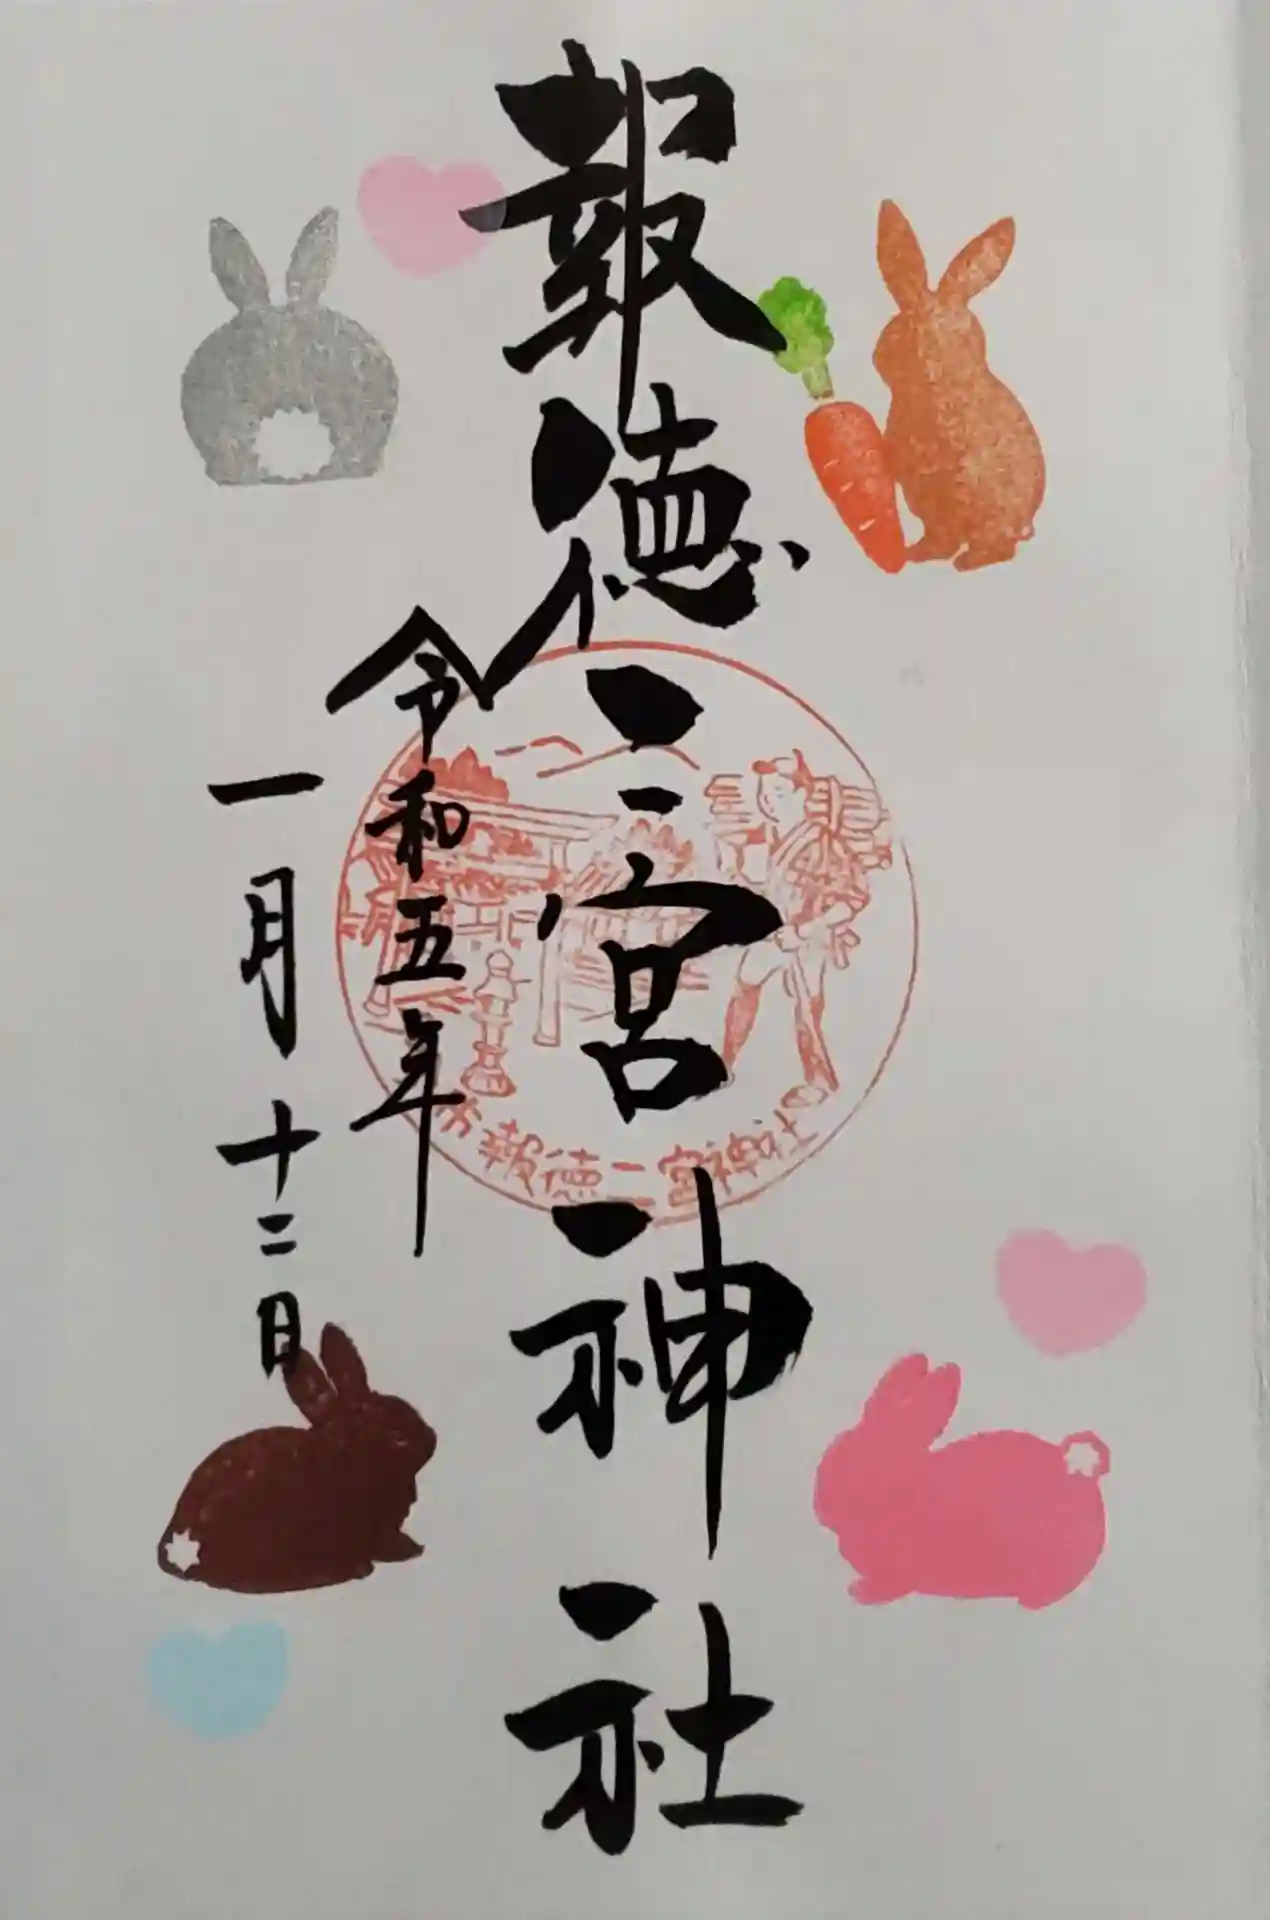 報徳二宮神社
令和五年
一月十二日
報徳二宮神社